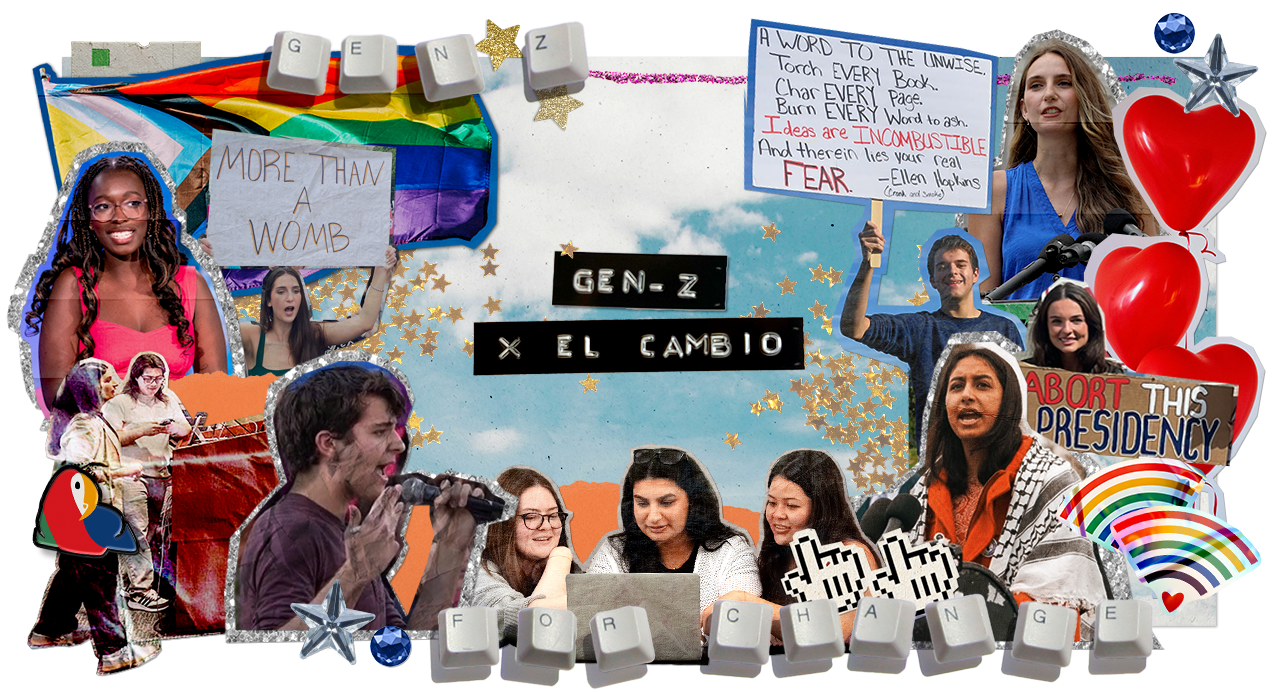 GEN Z
MORE THAN
A
WOMB
A WORD TO THE UNWISE.
Torch EVERY Book.
Char EVERY Page.
Burn EVERY Word to ash.
Ideas are INCOMBUSTIBLE
And therein lies your real
FEAR. -Ellen Hopkins
(Crank and Smoke)
GEN-Z
X EL CAMBIO
ABORT THIS
PRESIDENCY
FOR CHANGE